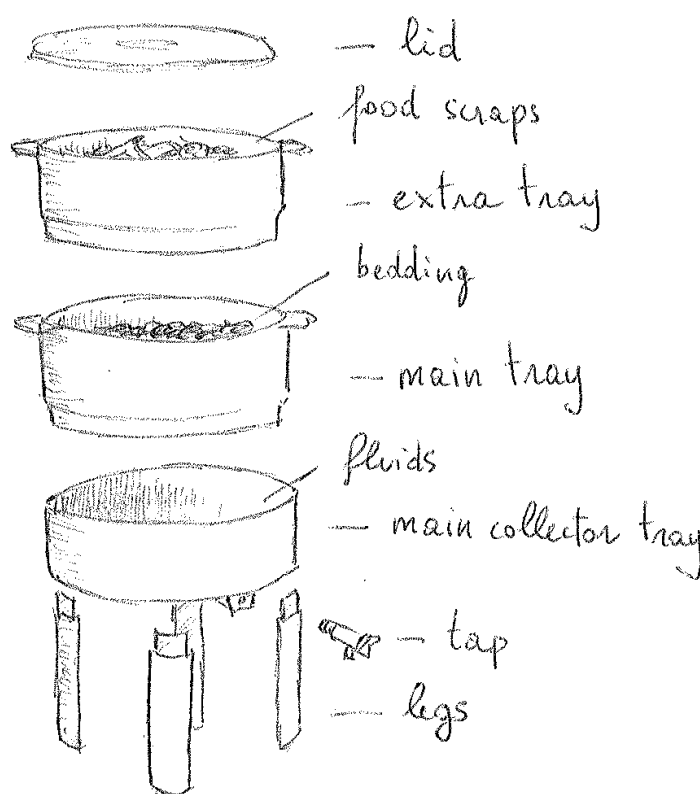 lid
food scraps
extra tray
bedding
main tray
fluids
main collector tray
tap
legs